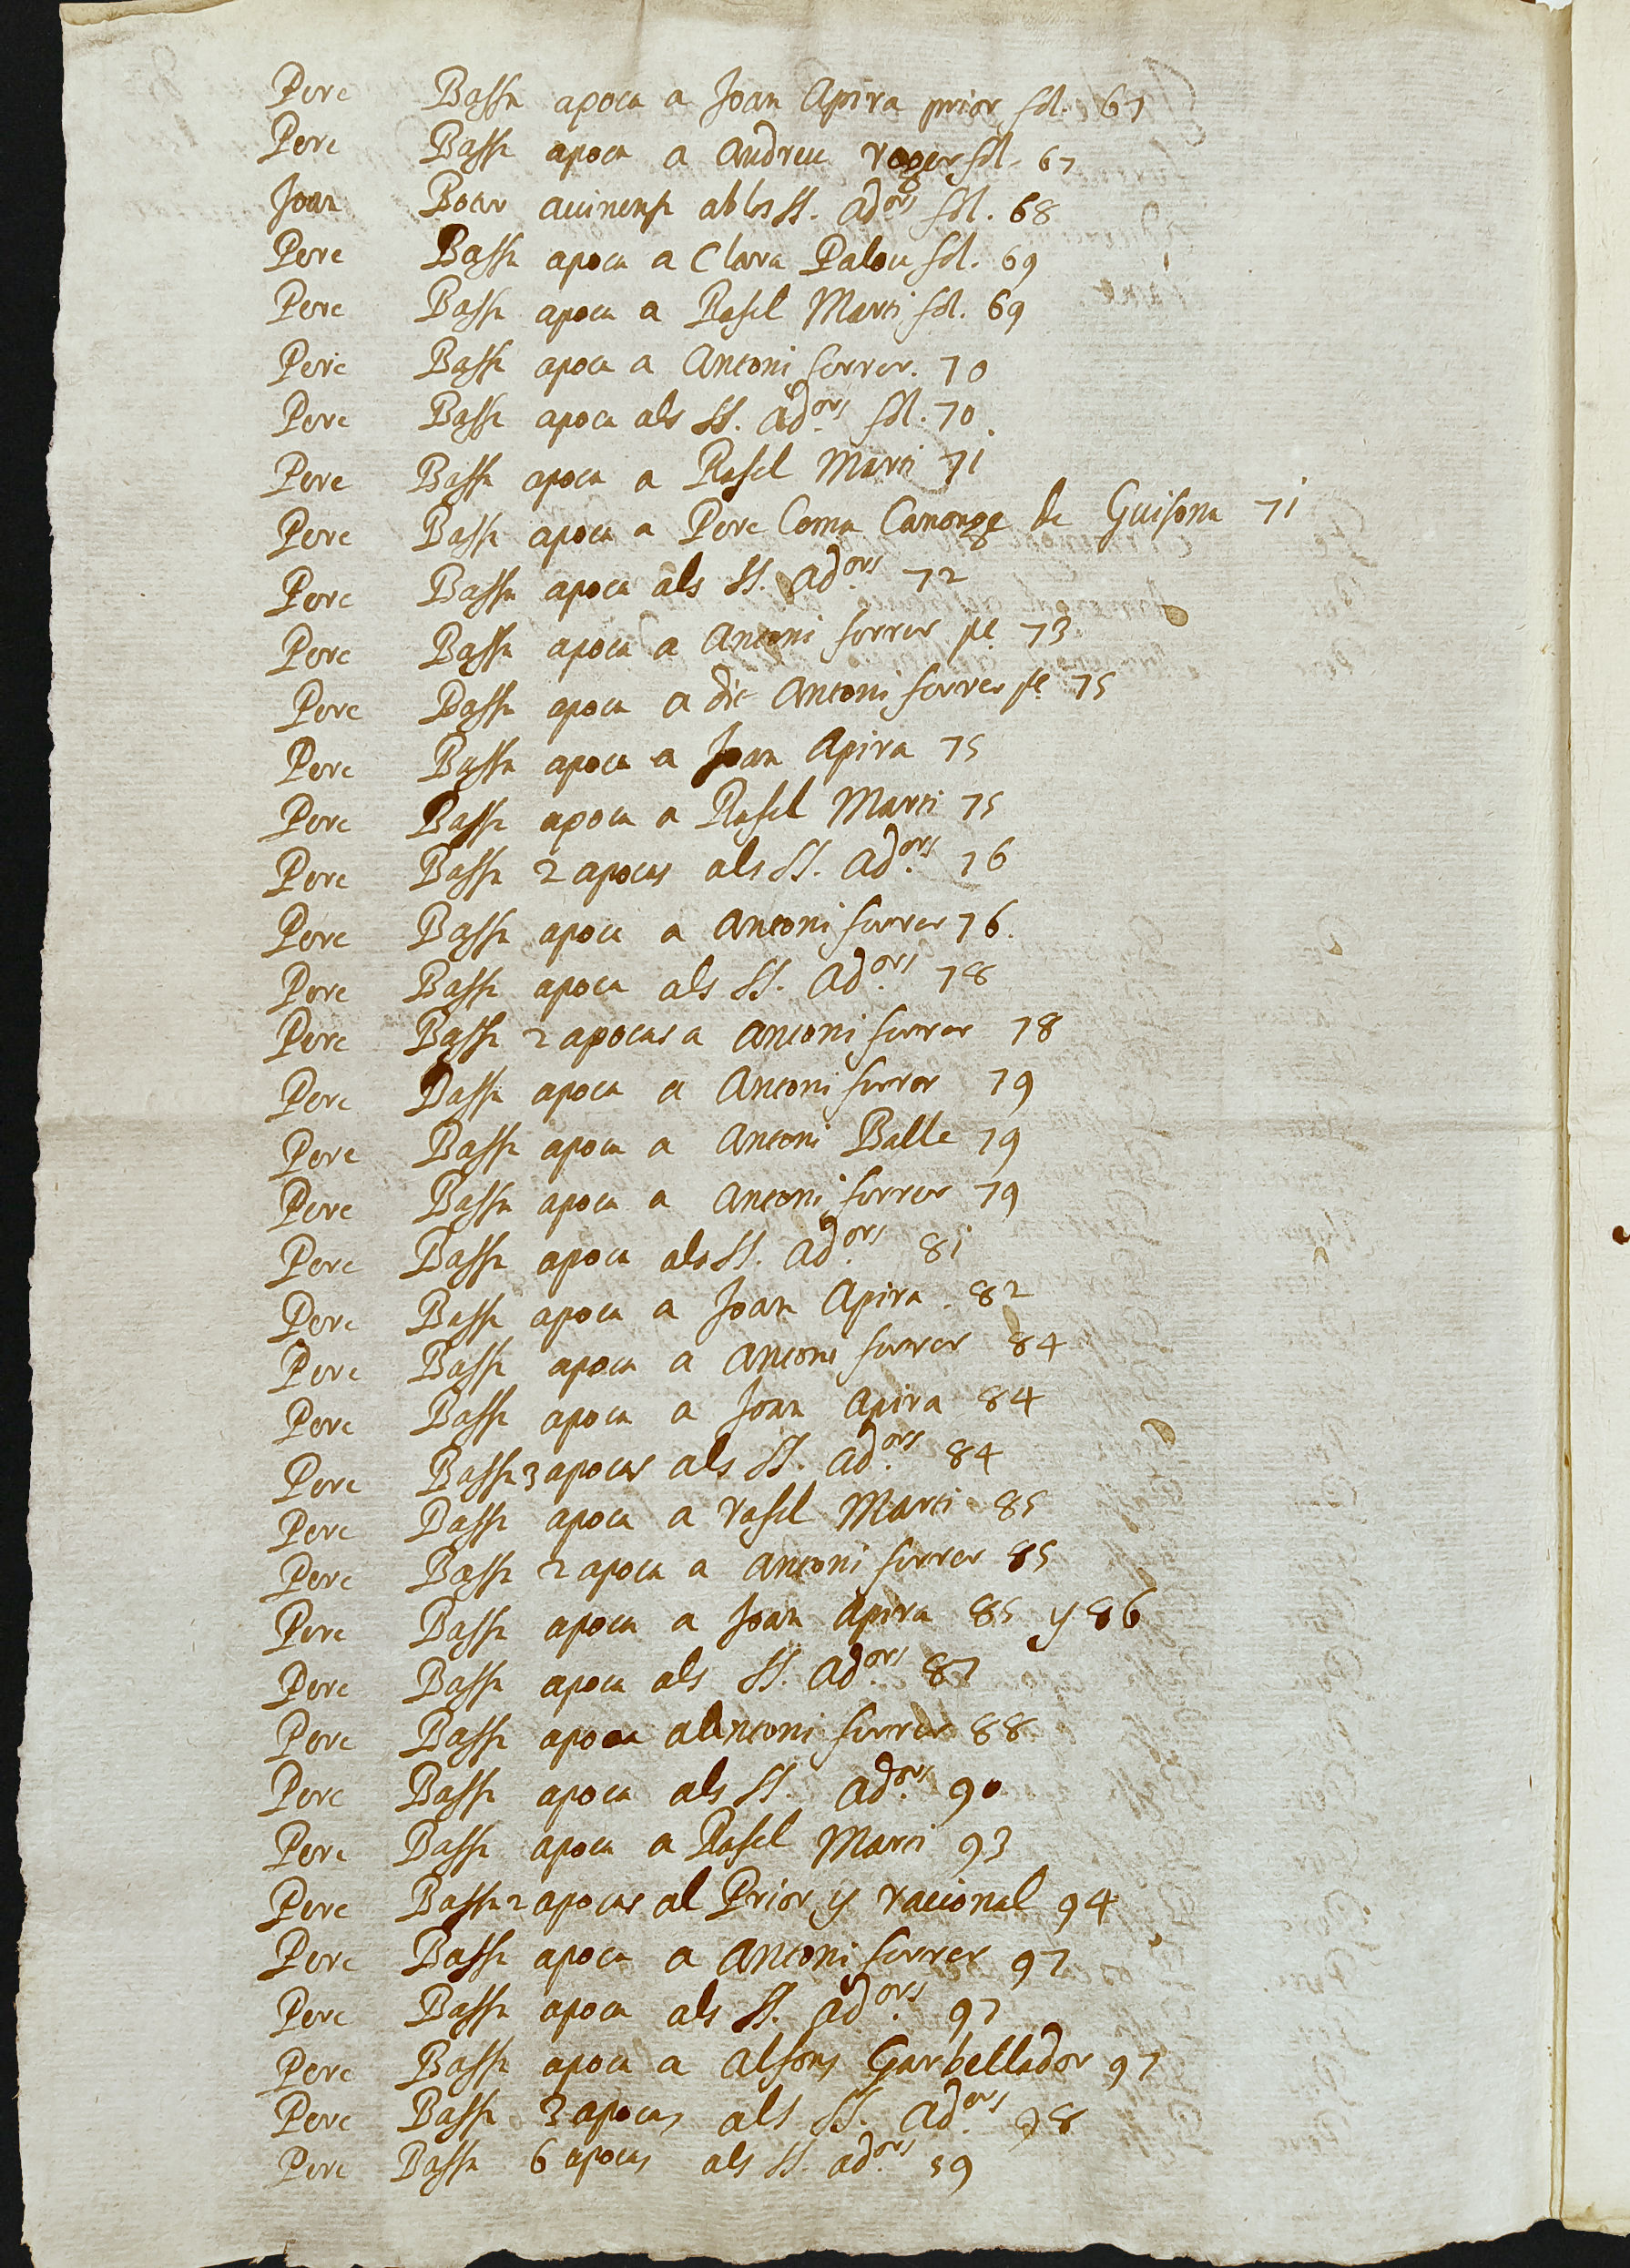 Pere Bassa apoca a Joan Apira prior fol. 67
Pere Bassa apoca a Andreu roger fol. 67
Joan Bover avinensa ab los SS. adors fol. 68
Pere Bassa apoca a Clara Palou fol. 69
Pere Bassa apoca a Rafel Marti fol. 69
Pere Bassa apoca a Antoni ferrer. 70
Pere Bassa apoca als SS. adors fol. 70
Pere Bassa apoca a Rafel Marti 71
Pere Bassa apoca a Pere Coma Canonge de Guisona 71
Pere Bassa apoca als SS. adors 72
Pere Bassa apoca a Antoni ferrer pe 73
Pere Bassa apoca a dit Antoni ferrer pe 75
Pere Bassa apoca a Joan Apira 75
Pere Bassa apoca a Rafel Marti 75
Pere Bassa 2 apocas als SS. adors 76
Pere Bassa apoca a Antoni ferrer 76.
Pere Bassa apoca als SS. adors 78
Pere Bassa 2 apocas a Antoni ferrer 78
Pere Bassa apoca a Antoni ferrer 79
Pere Bassa apoca a Antoni Balle 79
Pere Bassa apoca a Antoni ferrer 79
Pere Bassa apoca als SS. adors 81
Pere Bassa apoca a Joan Apira. 82
Pere Bassa apoca a Antoni ferrer 84
Pere Bassa apoca a Joan Apira 84
Pere Bassa 3 apocas als SS. adors 84
Pere Bassa apoca a rafel Marti 85
Pere Bassa 2 apoca a Antoni ferrer 85
Pere Bassa apoca a Joan Apira 85 y 86
Pere Bassa apoca als SS. adors 87
Pere Bassa apoca a Antoni ferrer 88
Pere Bassa apoca als SS. adors 90
Pere Bassa apoca a Rafel Marti 93
Pere Bassa 2 apocas al Prior y racional 94
Pere Bassa apoca a Antoni ferrer 97
Pere Bassa apoca als SS. adors 97
Pere Bassa apoca a Alfons Garbellador 97
Pere Bassa 3 apocas als SS. adors 98
Pere Bassa 6 apocas als SS. adors 99